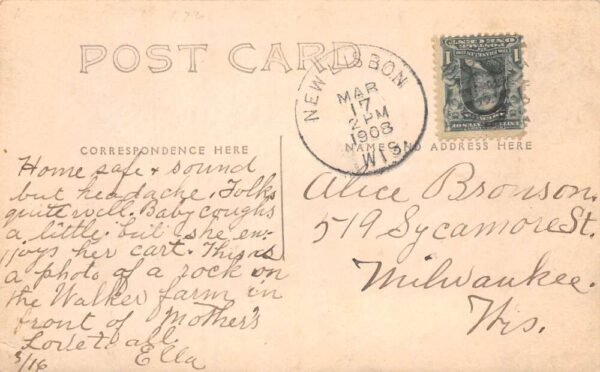 POST CARD
NEW LISBON
MAR
17
2 PM
1908
WIS.
ONE CENT
1
1
CORRESPONDENCE HERE
NAME AND ADDRESS HERE
Home safe + sound
but headache. Folks
quite well. Baby coughs
a little but she en-
joys her cart. This is
a photo of a rock on
the Walker farm in
front of Mother's
all.
Ella
3/16
Alice Bronson.
519 Sycamore St.
Milwaukee.
Wis.